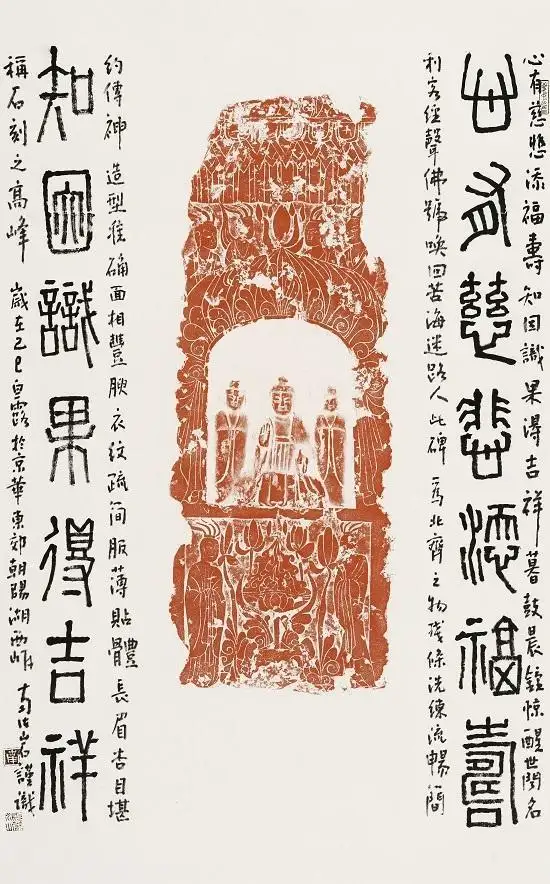 心有慈悲添福壽知因識果得吉祥暮鼓晨鐘惊醒世間名
心有慈悲添福壽
利客經聲佛號喚回苦海迷路人此碑為北齊之物條洗練流暢簡
約傳神造型准確面相豐腴衣紋疏简服薄貼體長眉杏目堪
知因識果得吉祥
稱石刻之高峰歲在乙巳白露於京華東郊朝陽湖西岸謹識